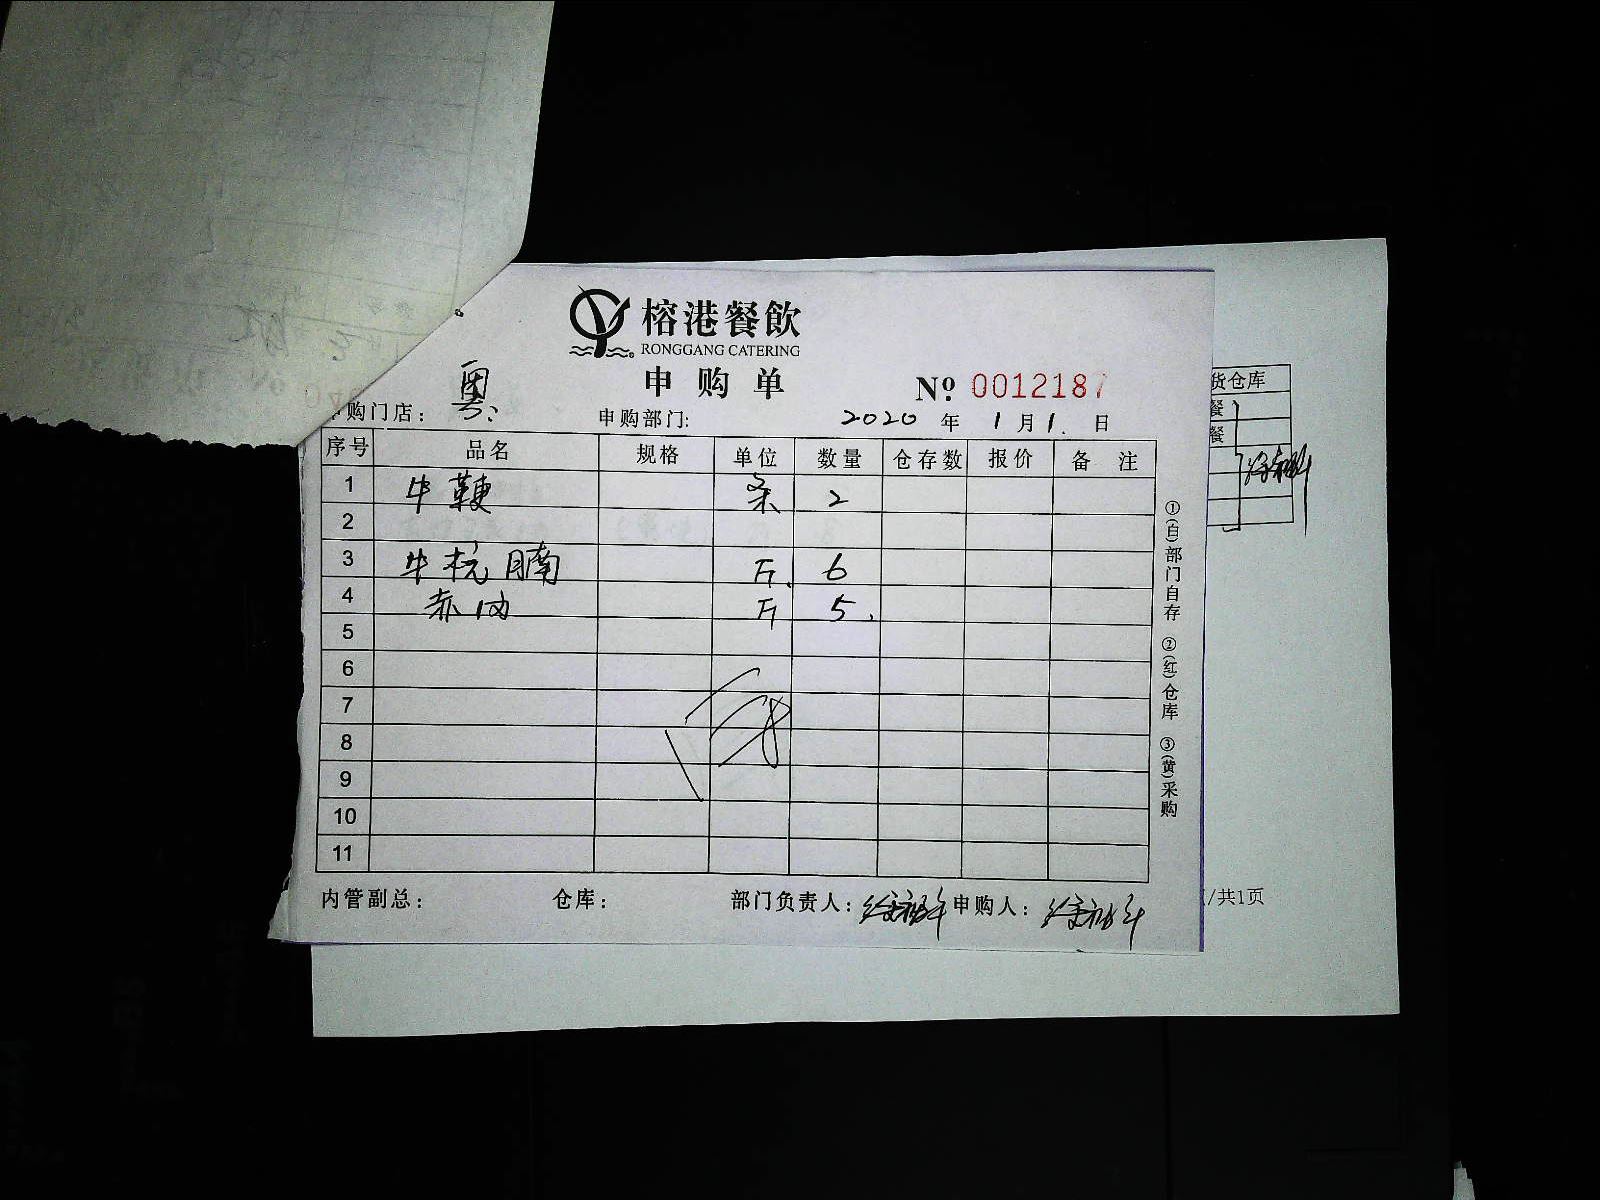 榕港餐飲
RONGGANG CATERING
申购单 № 0012187
申购门店: 粤 申购部门: 2020 年 1 月 1 日
序号 品名 规格 单位 数量 仓存数 报价 备注
1 牛鞭 条 2
2
3 牛杭腩 斤 6
4 赤肉 斤 5
5
6
7
8
9
10
11
内管副总: 仓库: 部门负责人: 申购人:
①(白)部门自存 ②(红)仓库 ③(黄)采购
货仓库
餐
餐
/共1页